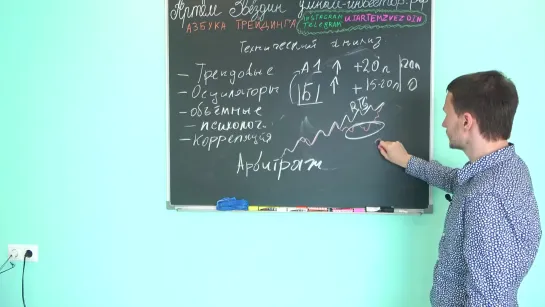 Артём Звёздин умный-инвестор.рф
АЗБУКА ТРЕЙДИНГА
INSTAGRAM
TELEGRAM
UJARTEMZVEZDIN
Технический анализ
– Трендовые
– Осцилляторы
– объёмные
– психолог.
– Корреляция
А1 ↑ +20п
Б1 ↑ + 15-20п
0
Арбитраж